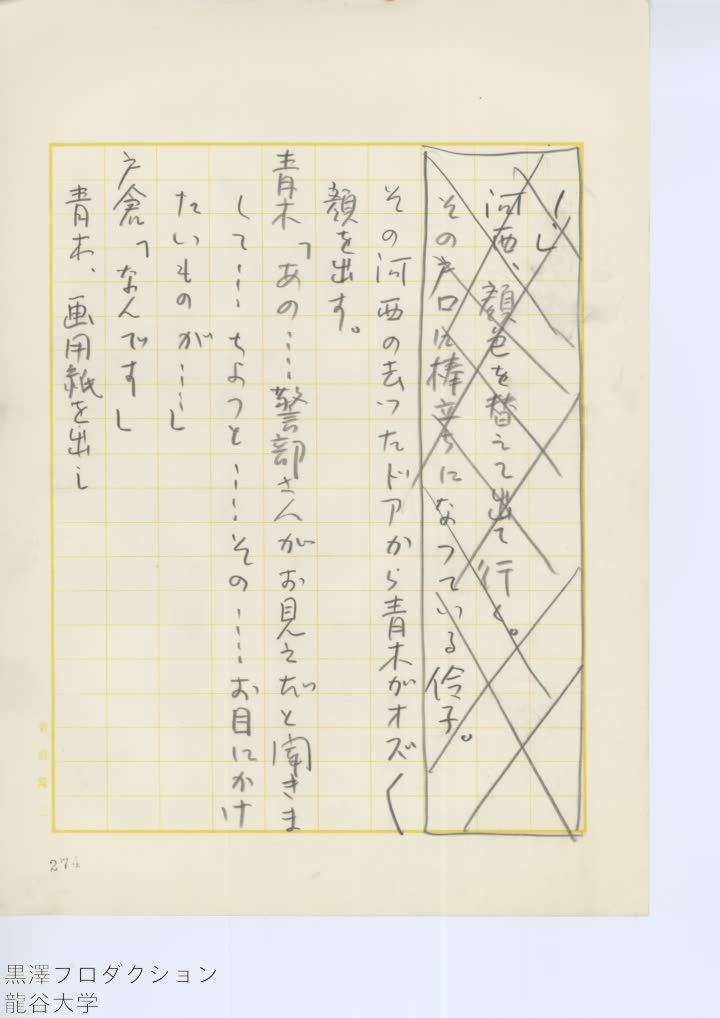 し」
河西、顔色を替えて出て行く。
その戸口に棒立ちになつている伶子。
その河西の去つたドアから青木がオズ〱
顔を出す。
青木「あの……警部さんがお見えだと聞きま
して……ちよつと……その……お目にかけ
たいものが……」
戸倉「なんです」
青木、画用紙を出し
274
黒澤プロダクション
龍谷大学